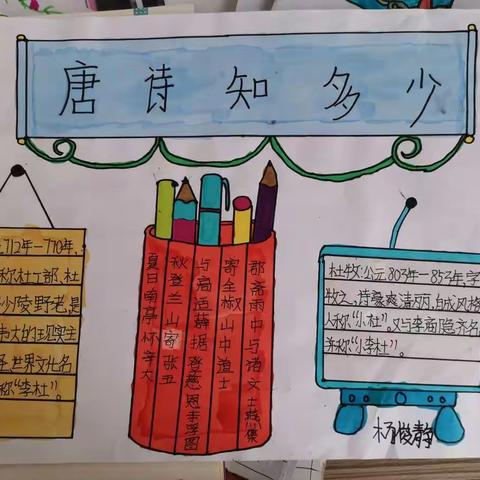 唐诗知多少
712年—770年,
称杜工部、杜
少陵野老,是
伟大的现实主
圣,世界文化名
称“李杜”。
夏日南亭怀辛大
秋登兰山寄张五
与高适薛据登慈恩寺浮图
寄全椒山中道士
郡斋雨中与诸文士燕集
杜牧:公元803年—853年,字
牧之、诗豪爽清丽,自成风格
人称“小杜”。又与李商隐齐名
并称“小李杜”。
杨俊静